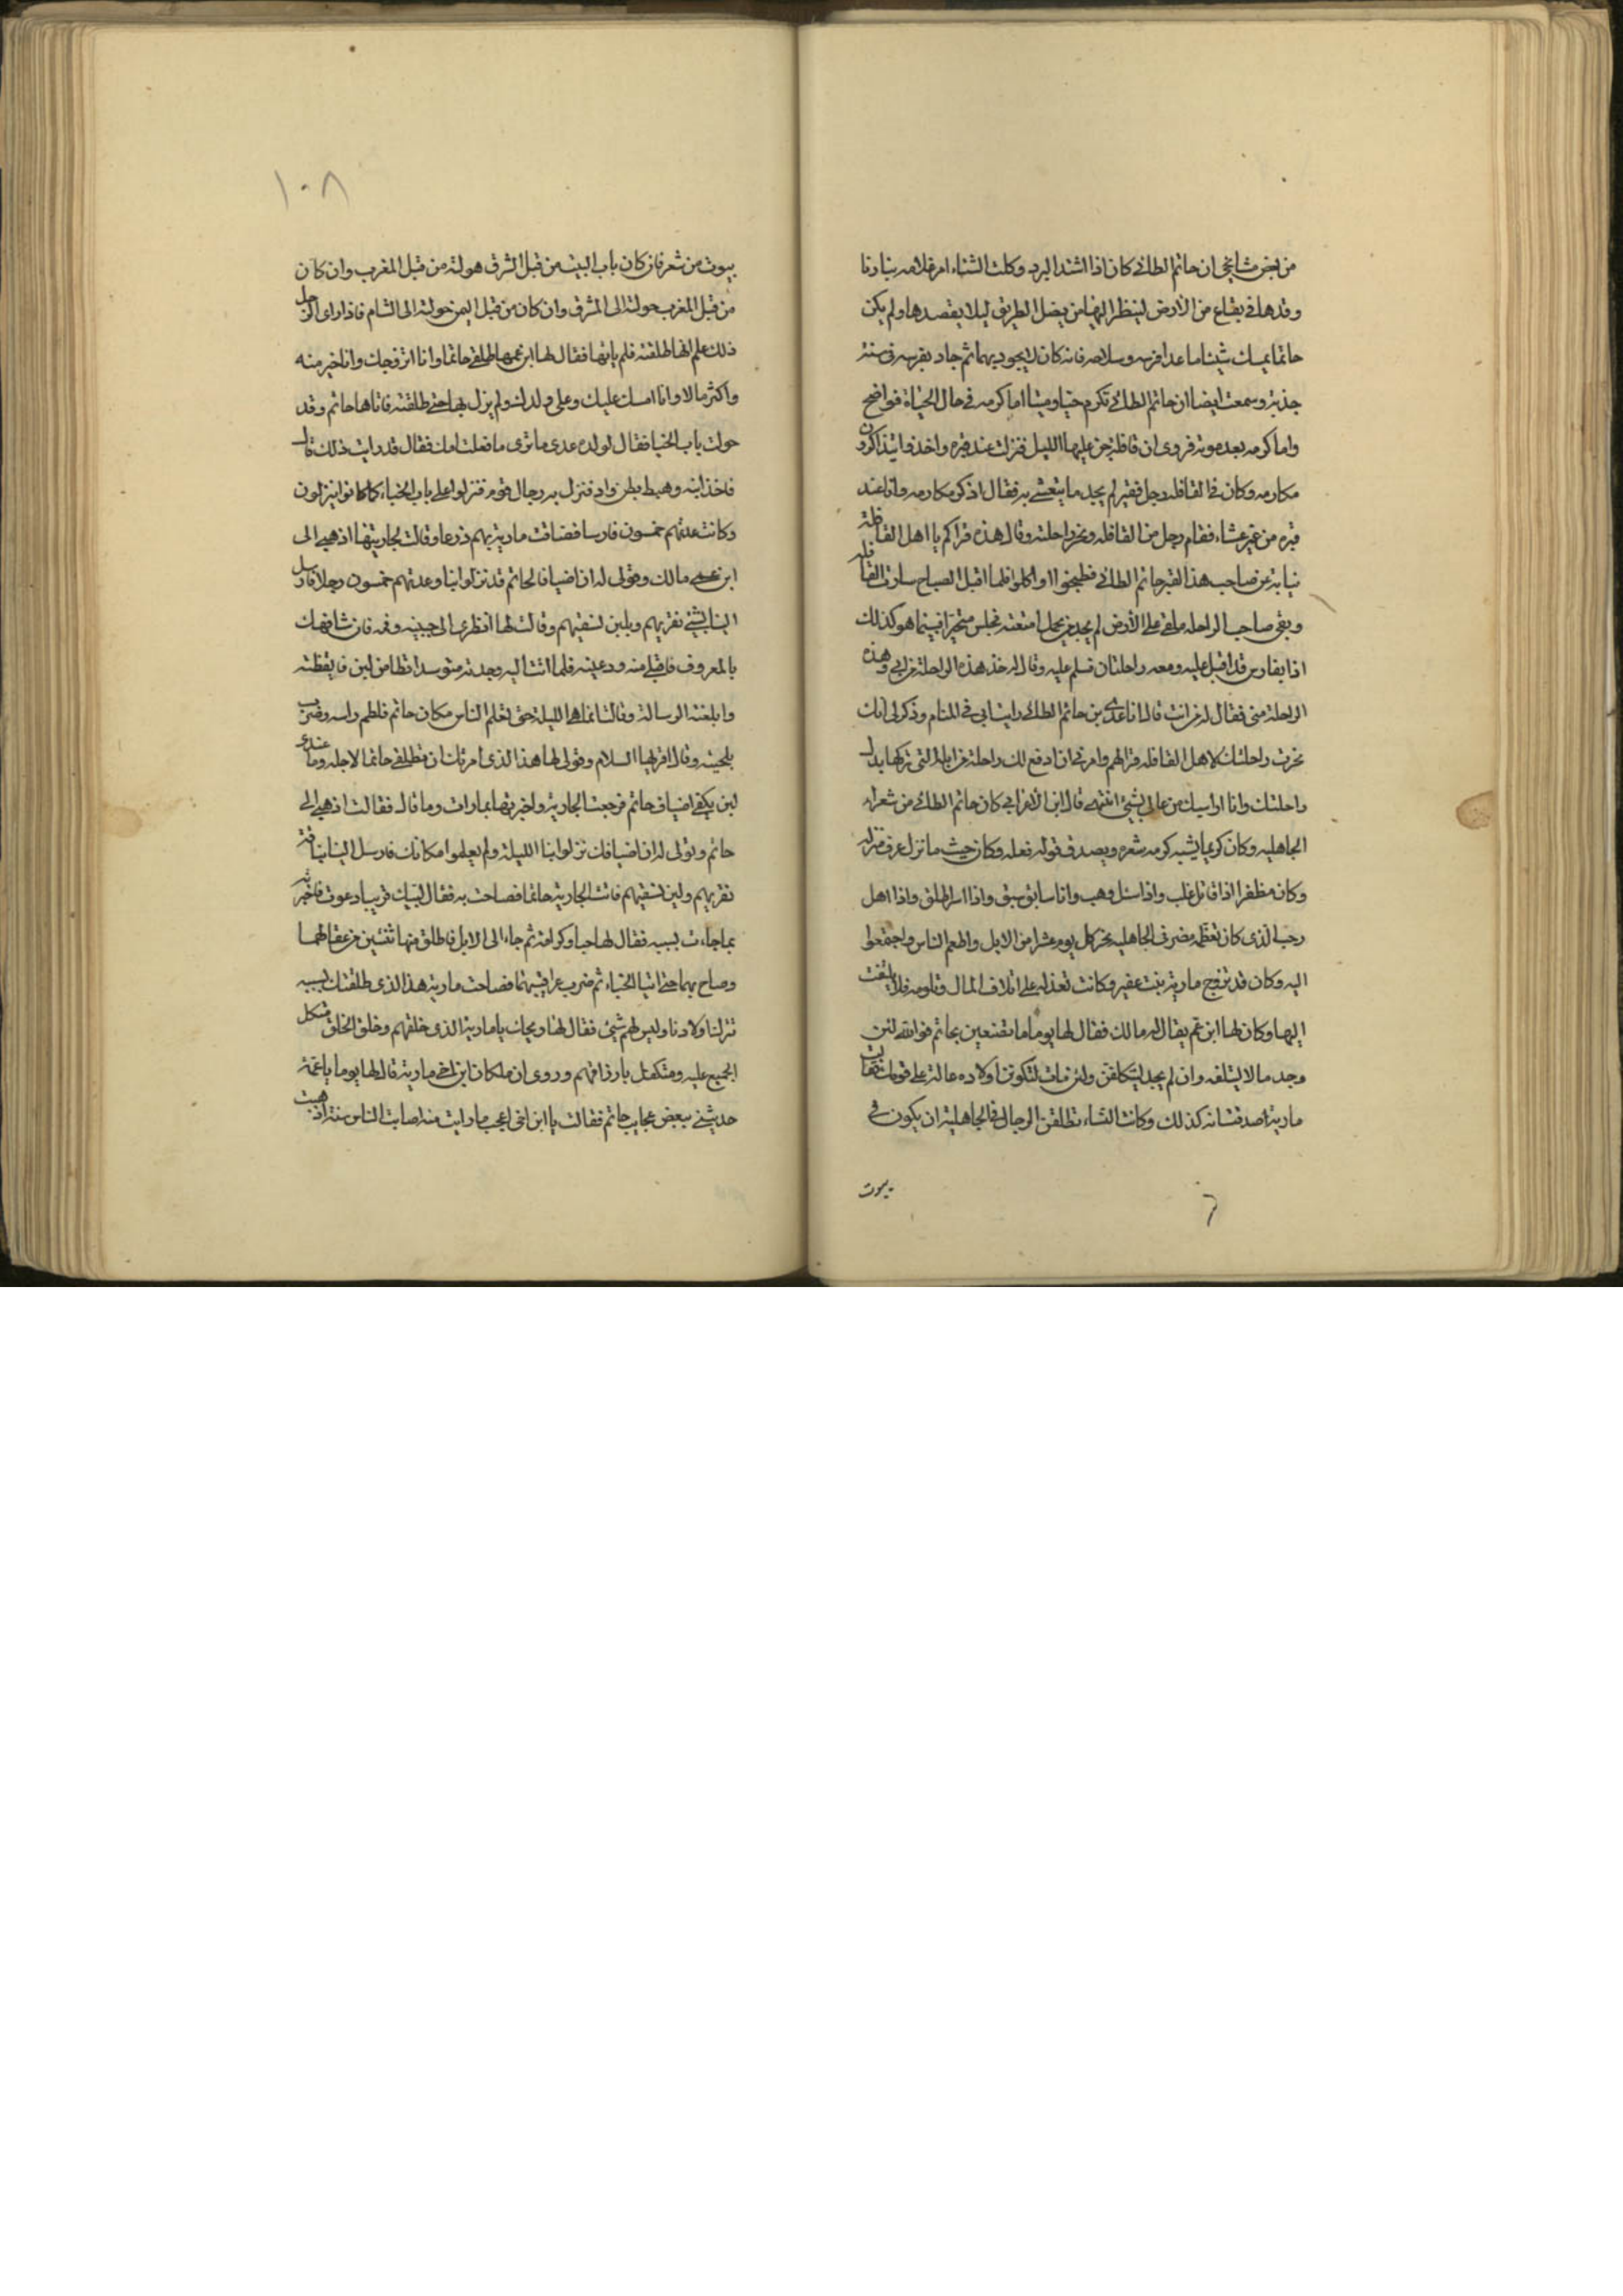 من بعض مشايخي ان حاتم الطائي كان اذا اشتد البرد وكلت الشتاء امر غلامه بنار نا
وقدها في بقاع من الارض لينظر اليها من يضل الطريق ليلا يقصدها ولم يكن
حاتما يمسك شيئا ما عدا فرسه وسلاحه فانه كان لا يجود بهما ثم جاد بفرسه في سنة
جذبة وسمعت ايضا ان حاتم الطائي تكرم حيا وميتا اما كرمه في حال الحياة فواضح
واما كرمه بعد موته فروي ان قافلة جن عليها الليل فنزلت عند قبره واخذوا يتذاكرون
مكارمه وكان في القافله رجل فقير لم يجد ما يتعشى به فقال اذكر مكارمه وانا عند
قبره من غير عشاء فقام رجل من القافله ونحر راحلته وقال هذه قراكم يا اهل القافلة
نيابة عن صاحب هذا القبر حاتم الطائي فطبخوا واكلوا فلما اقبل الصباح سارت القافله
وبقى صاحب الراحله ملقى على الارض لم يجد من يحمل امتعته فجلس متحيرا فبينما هو كذلك
اذا بفارس قد اقبل عليه ومعه راحلتان فسلم عليه وقال له خذ هذه الراحلة من ابي وهذه
الراحلة مني فقال له من انت قال انا عدى بن حاتم الطائي رايت ابي في المنام وذكر لي انك
نحرت راحلتك لاهل القافله قرا لهم وامرني ان ادفع لك راحلة من ابله التي تركها بدل
راحلتك وانا اواسيك من مالي بشئ انتهى قال ابن الاعرابي كان حاتم الطائي من شعراء
الجاهليه وكان كريما يشبه كرمه شعره ويصدق قوله فعله وكان حيث ما نزل عرف منزله
وكان مظفرا اذا قاتل غلب واذا سئل وهب وانا سابق سبق واذا اسر اطلق واذا اهل
رجب الذى كان تعظمه مضر في الجاهليه نحر كل يوم عشرا من الابل واطعم الناس واجتمعوا
اليه وكان قد تزوج مارية بنت عفير وكانت تعذله على اتلاف المال وتلومه فلا يلتفت
اليها وكان لها ابن عم يقال له مالك فقال لها يوما ما تصنعين بحاتم فوالله لئن
وجد مالا ليتلفه وان لم يجد ليتكلفن ولئن مات لتكونن اولاده عالة على قومك فقالت
مارية صدقت انه كذلك وكانت النساء تطلقن الرجال في الجاهلية ان يكون في
بيوت
١٠٨
بيوت من شعر فان كان باب البيت من قبل الشرق حولته من قبل المغرب وان كان
من قبل المغرب حولته الى المشرق وان كان من قبل اليمن حولته الى الشام فاذا راى الرجل
ذلك علم انها طلقته فلم ياتها فقال لها ابن عمها طلقي حاتما وانا اتزوجك وانا خير منه
واكثر مالا وانا امسك عليك وعلى ولدك ولم يزل بها حتى طلقته فاتاها حاتم وقد
حولت باب الخبا فقال لولده عدى ما ترى ما فعلت امك فقال قد رايت ذلك قال
فاخذ ابنه وهبط بطن واد فنزل به رجال قوم فنزلوا على باب الخباء كما كانوا ينزلون
وكانت عدتهم خمسون فارسا فضاقت مارية بهم ذرعا وقالت لجاريتها اذهبي الى
ابن عمى مالك وقولى له ان اضيافا لحاتم قد نزلوا بنا وعدتهم خمسون رجلا فارسل
الينا بشئ نقريهم وبلبن نسقيهم وقالت لها انظرى الى جبينه وفمه فان شافهك
بالمعروف فاقبلى منه ودعيته فلما اتت اليه وجدته متوسدا وطبا من لبن فايقظته
وابلغته الرسالة وقالت انما هي الليلة حتى تعلم الناس مكان حاتم فلطم راسه وضرب
بلحيته وقال اقريها السلام وقولى لها هذا الذى امرتك ان تطلقي حاتما لاجله وما عندى
لبن يكفي اضياف حاتم فرجعت الجارية واخبرتها بما رات وما قال فقالت اذهبي الى
حاتم وقولى له ان اضيافك نزلوا بنا الليلة ولم يعلموا مكانك فارسل الينا بناقة
نقريهم ولبن نسقيهم فاتت الجارية حاتما فصاحت به فقال لبيك قريبا دعوت فاخبرته
بما جاءت بسببه فقال لها حبا وكرامة ثم جاء الى الابل فاطلق منها ثنتين من عقالهما
وصاح بهما حتى اتيا الخباء ثم ضرب عراقيبهما فصاحت مارية هذا الذى طلقتك بسببه
تترك اولادنا وليس لهم شئ فقال لها ويحك يا مارية الذى خلقهم وخلق الخلق متكل
الجميع عليه ومتكفل بارزاقهم وروى ان ملكان ابن اخي مارية قال لها يوما يا عمة
حدثيني ببعض عجايب حاتم فقالت يا ابن اخي اعجب ما رايت منه اصابت الناس سنة اذهبت